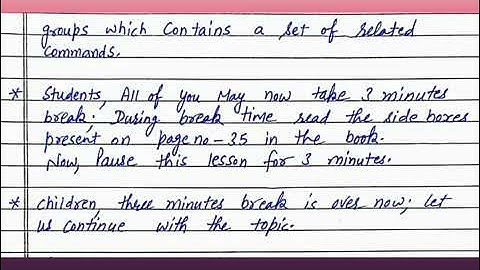 groups which Contains a set of related
Commands.
* Students, All of you May now take 3 minutes
break. During break time read the side boxes
present on page no-35 in the book.
Now, Pause this lesson for 3 minutes.
* children, three minutes break is over now; let
us continue with the topic.